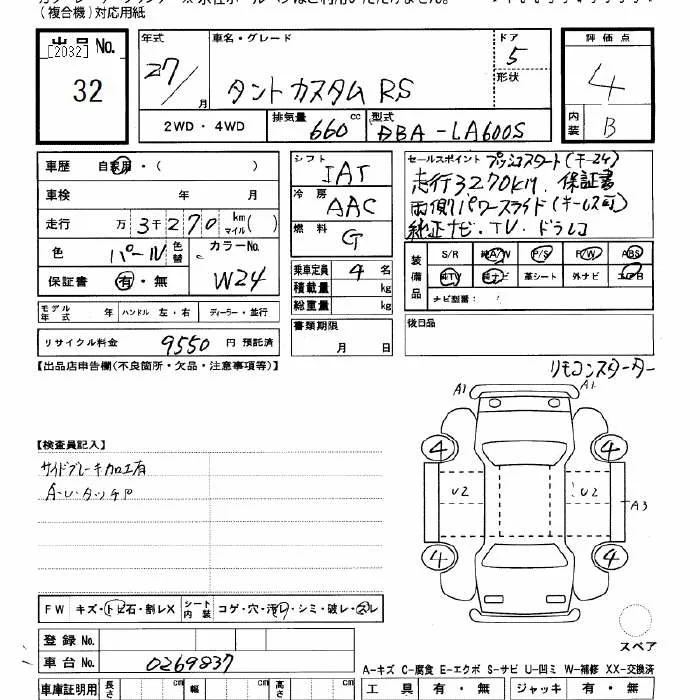 (複合機)対応用紙
出品 No.
[2032]
32
年式 27/ 月
車名・グレード タントカスタム RS
ドア 5
形状
評価点 4
内装 B
2WD・4WD
排気量 660 cc
型式 DBA-LA600S
車歴 自家用・( )
車検 年 月
走行 万 3千270 km マイル ( )
色 パール 色替
カラーNo. W24
保証書 有・無
シフト IAT
冷房 AAC
燃料 G
乗車定員 4 名
積載量 kg
総重量 kg
セールスポイント プッシュスタート(キー24)
走行3270km 保証書
両側パワースライド(キーレス可)
純正ナビ・TV・ドラレコ
装備品 S/R 純A/W P/S P/W ABS
純TV 純ナビ 革シート 外ナビ エアB
ナビ型番:
モデル年式 年 ハンドル 左・右 ディーラー・並行
書類期限 月 日
後日品
リサイクル料金 9550 円 預託済
【出品店申告欄(不良箇所・欠品・注意事項等)】
リモコンスターター
A1 A1
【検査員記入】
サイドブレーキ加工有
A・U・タッチP
4 4
U2 U2
A3
4 4
FW キズ・トビ石・割レX シート内装 コゲ・穴・汚レ・シミ・破レ・スレ
登録 No.
車台 No. 0269837
スペア
A-キズ C-腐食 E-エクボ S-サビ U-凹ミ W-補修 XX-交換済
車庫証明用 長さ cm 幅 cm 高さ cm
工具 有・無 ジャッキ 有・無